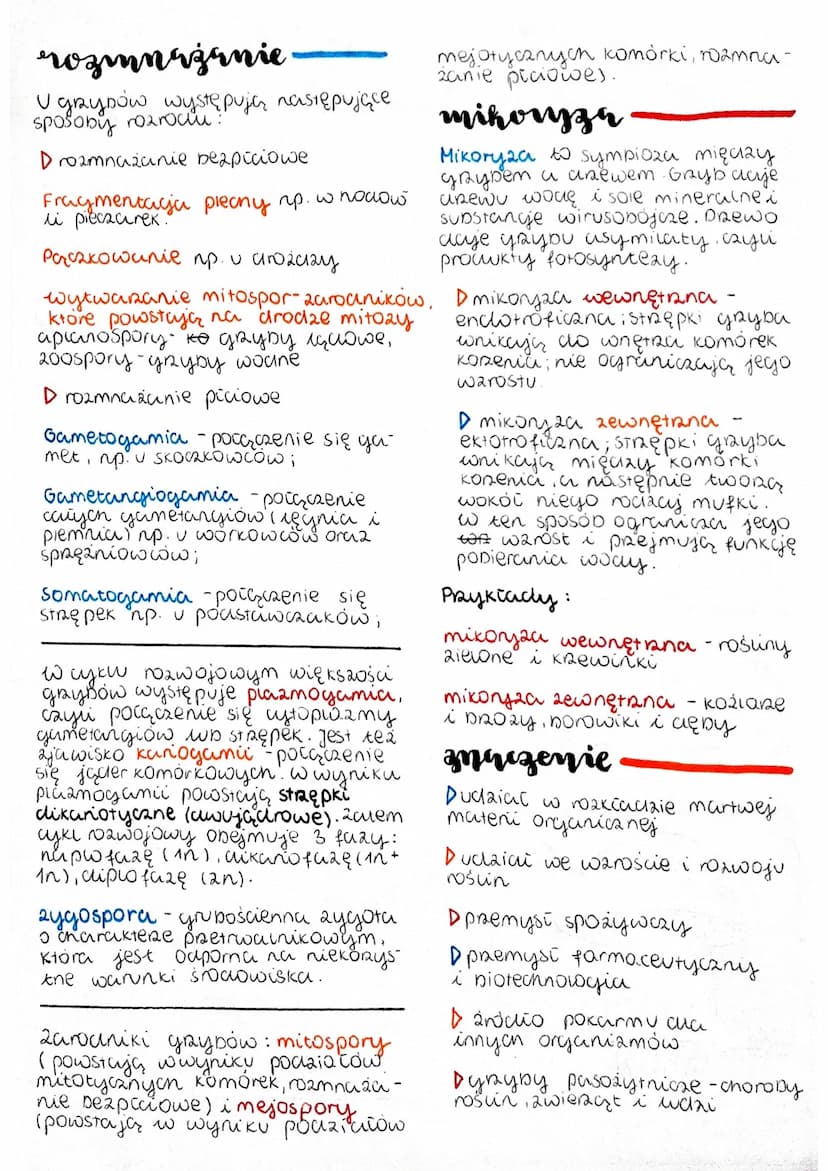 rozmnażanie
U grzybów występują następujące
sposoby rozrodu:
rozmnażanie bezpłciowe
Fragmentacja plechy np. w hodow
li pieczarek.
Pączkowanie np. u drożdży
wytwarzanie mitospor-zarodników,
które powstają na drodze mitozy
aplanospory- grzyby lądowe,
zoospory-grzyby wodne
rozmnażanie płciowe
Gametogamia - połączenie się ga-
met, np. u skoczkowców;
Gametangiogamia - połączenie
całych gametangiów (lęgnia i
plemnia) np. u workowców oraz
sprzężniowców;
Somatogamia - połączenie się
strzępek np. u podstawczaków;
W cyklu rozwojowym większości
grzybów występuje plazmogamia,
czyli połączenie się cytoplazmy
gametangiów lub strzępek. Jest też
zjawisko kariogamii - połączenie
się jąder komórkowych. W wyniku
plazmogamii powstają strzępki
dikariotyczne (dwujądrowe). Zatem
cykl rozwojowy obejmuje 3 fazy:
haplofazę (1n), dikariofazę (1n+
1n), diplofazę (2n).
zygospora - grubościenna zygota
o charakterze przetrwalnikowym,
która jest odporna na niekorzys-
tne warunki środowiska.
Zarodniki grzybów: mitospory
(powstają w wyniku podziałów
mitotycznych komórek, rozmnaża-
nie bezpłciowe) i mejospory
(powstają w wyniku podziałów
mejotycznych komórki, rozmna-
żanie płciowe).
mikoryza
Mikoryza to symbioza między
grzybem a drzewem. Grzyb daje
drzewu wodę i sole mineralne i
substancje wirusobójcze. Drzewo
daje grzybu asymilaty, czyli
produkty fotosyntezy.
mikoryza wewnętrzna -
endotroficzna; strzępki grzyba
wnikają do wnętrza komórek
korzenia; nie ograniczają jego
wzrostu
mikoryza zewnętrzna -
ektotroficzna; strzępki grzyba
wnikają między komórki
korzenia, a następnie tworzą
wokół niego rodzaj mufki.
W ten sposób ogranicza jego
wzrost i przejmują funkcję
pobierania wody.
Przykłady:
mikoryza wewnętrzna - rośliny
zielone i krzewinki
mikoryza zewnętrzna - koźlarze
i brzozy, borowiki i dęby
znaczenie
udział w rozkładzie martwej
materii organicznej
udział we wzroście i rozwoju
roślin
przemysł spożywczy
przemysł farmaceutyczny
i biotechnologia
źródło pokarmu dla
innych organizmów
grzyby pasożytnicze - choroby
roślin, zwierząt i ludzi